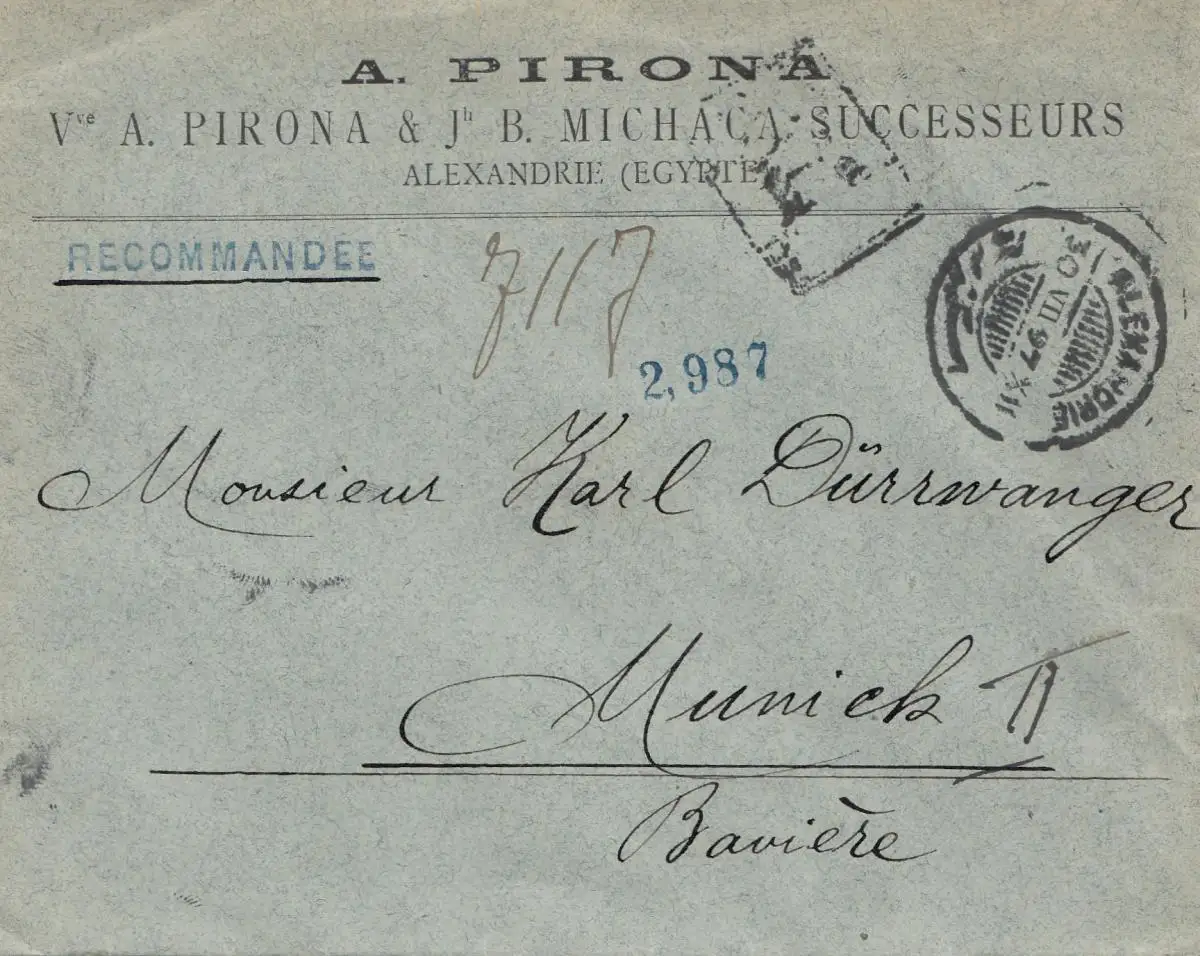 A. PIRONA
Vve A. PIRONA & Jh B. MICHACA SUCCESSEURS
ALEXANDRIE (EGYPTE)
RECOMMANDÉE
7117
2,987
ALEXANDRIE
30 VII 97 XII
Monsieur Karl Dürrwanger
Munich II
Bavière